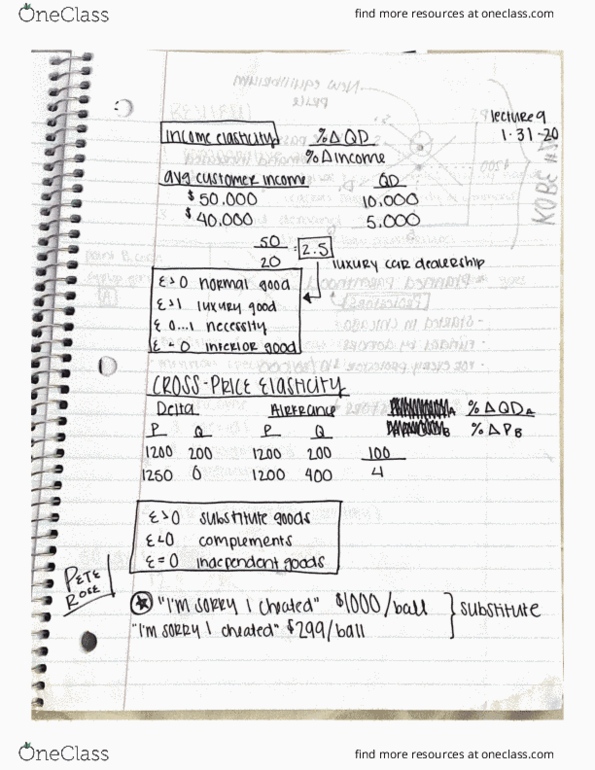 OneClass
find more resources at oneclass.com
lecture 9
1.31.20
income elasticity %ΔQD
%Δ income
avg customer income QD
$50,000 10,000
$40,000 5,000
50
20 = 2.5
luxury car dealership
ε>0 normal good
ε>1 luxury good
ε 0...1 necessity
ε<0 inferior good
CROSS-PRICE Elasticity
Delta Airfrance
P Q P Q
A %ΔQD_A
B %ΔP_B
1200 200 1200 200 100
1250 0 1200 400 4
ε>0 substitute goods
ε<0 complements
ε=0 independent goods
PETE
ROSE
"I'm sorry I cheated" $1000/ball
"I'm sorry I cheated" $299/ball
substitute
OneClass
find more resources at oneclass.com